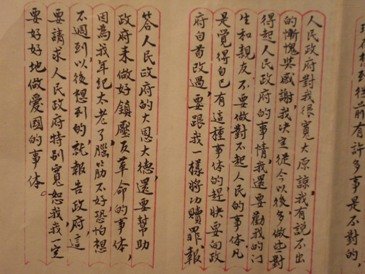 到從前有許多事是不對的,
人民政府對我很寬大原諒我有說不出
的慚愧與感謝我决定從今以後多做些對
得起人民政府的事情我還要勸我的门
生和親友不要做對不起人民的事体凡
是覺得自己有這種事体的趕快要向政
府自首改過,要跟我一樣將功贖罪,報
答人民政府的大恩大德,還要幫助
政府来做好鎮壓反革命的事体,
因為我年紀太老了腦筋不好恐怕想
不週到以後想到的就報告政府,這
要請求人民政府特别寬恕我我一定
要好好地做愛國的事体。